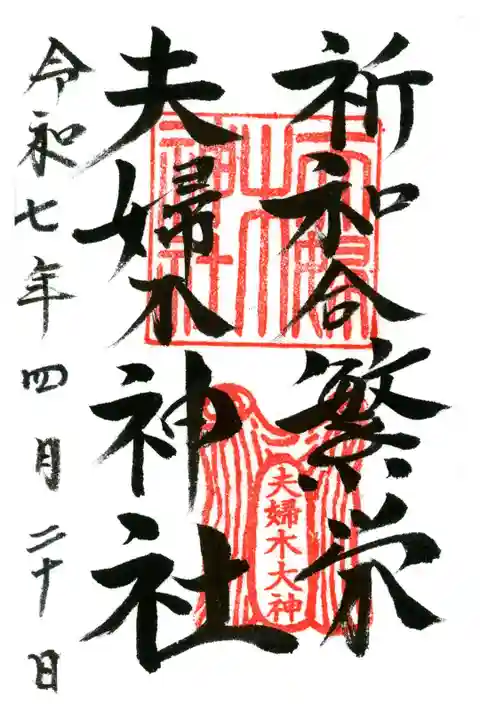 祈和合繁栄
夫婦木神社
令和七年四月二十日
夫婦木大神